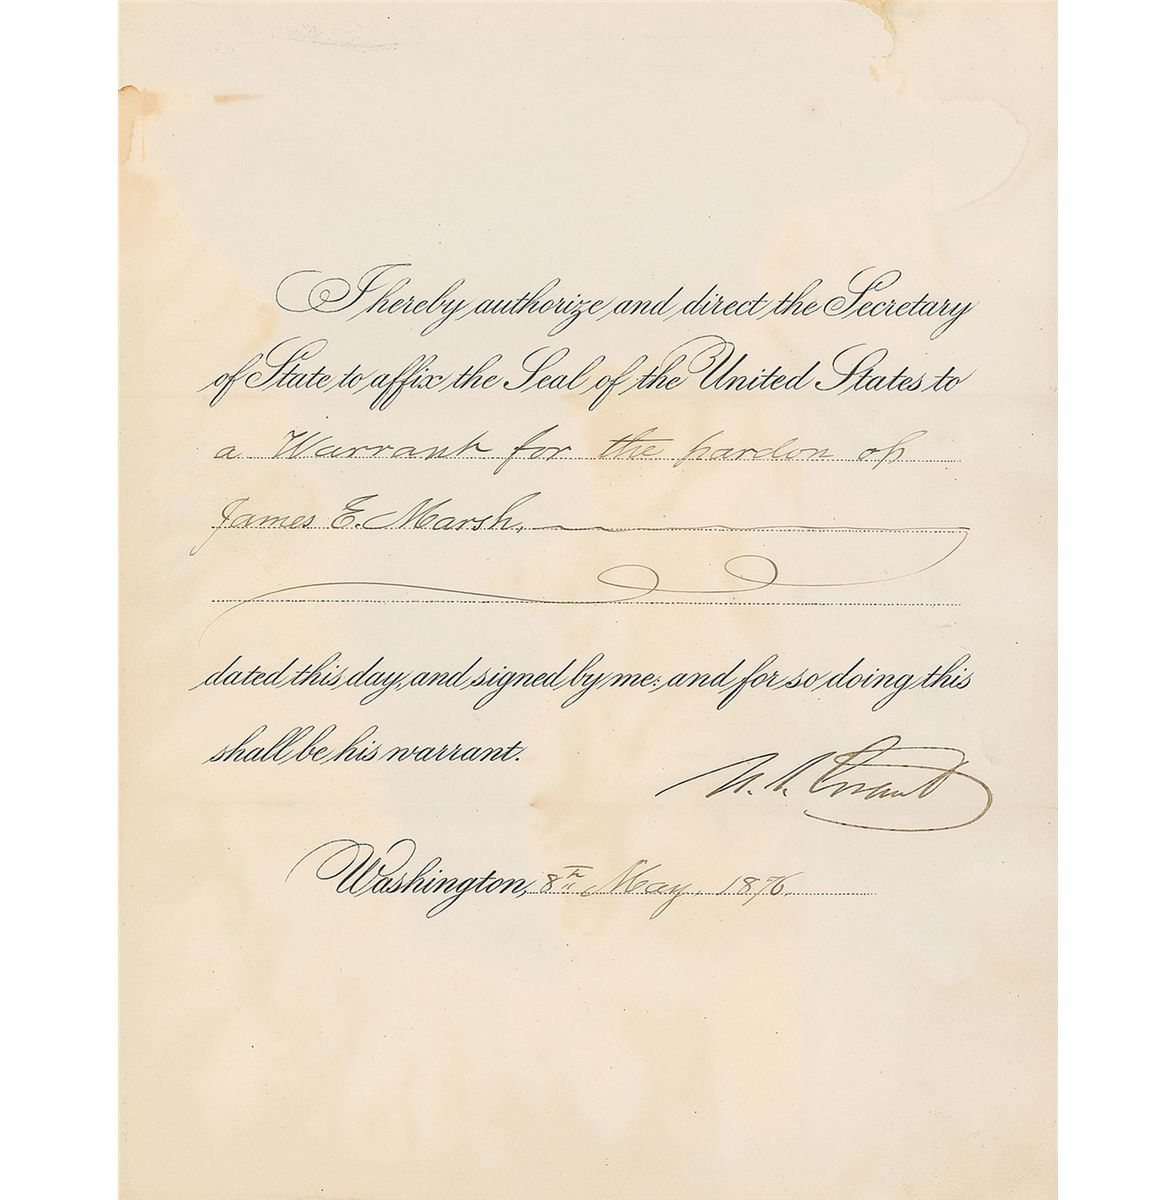 I hereby authorize and direct the Secretary
of State to affix the Seal of the United States to
a Warrant for the pardon of
James E. Marsh,
dated this day, and signed by me: and for so doing this
shall be his warrant.
U. S. Grant
Washington, 8th May, 1876.